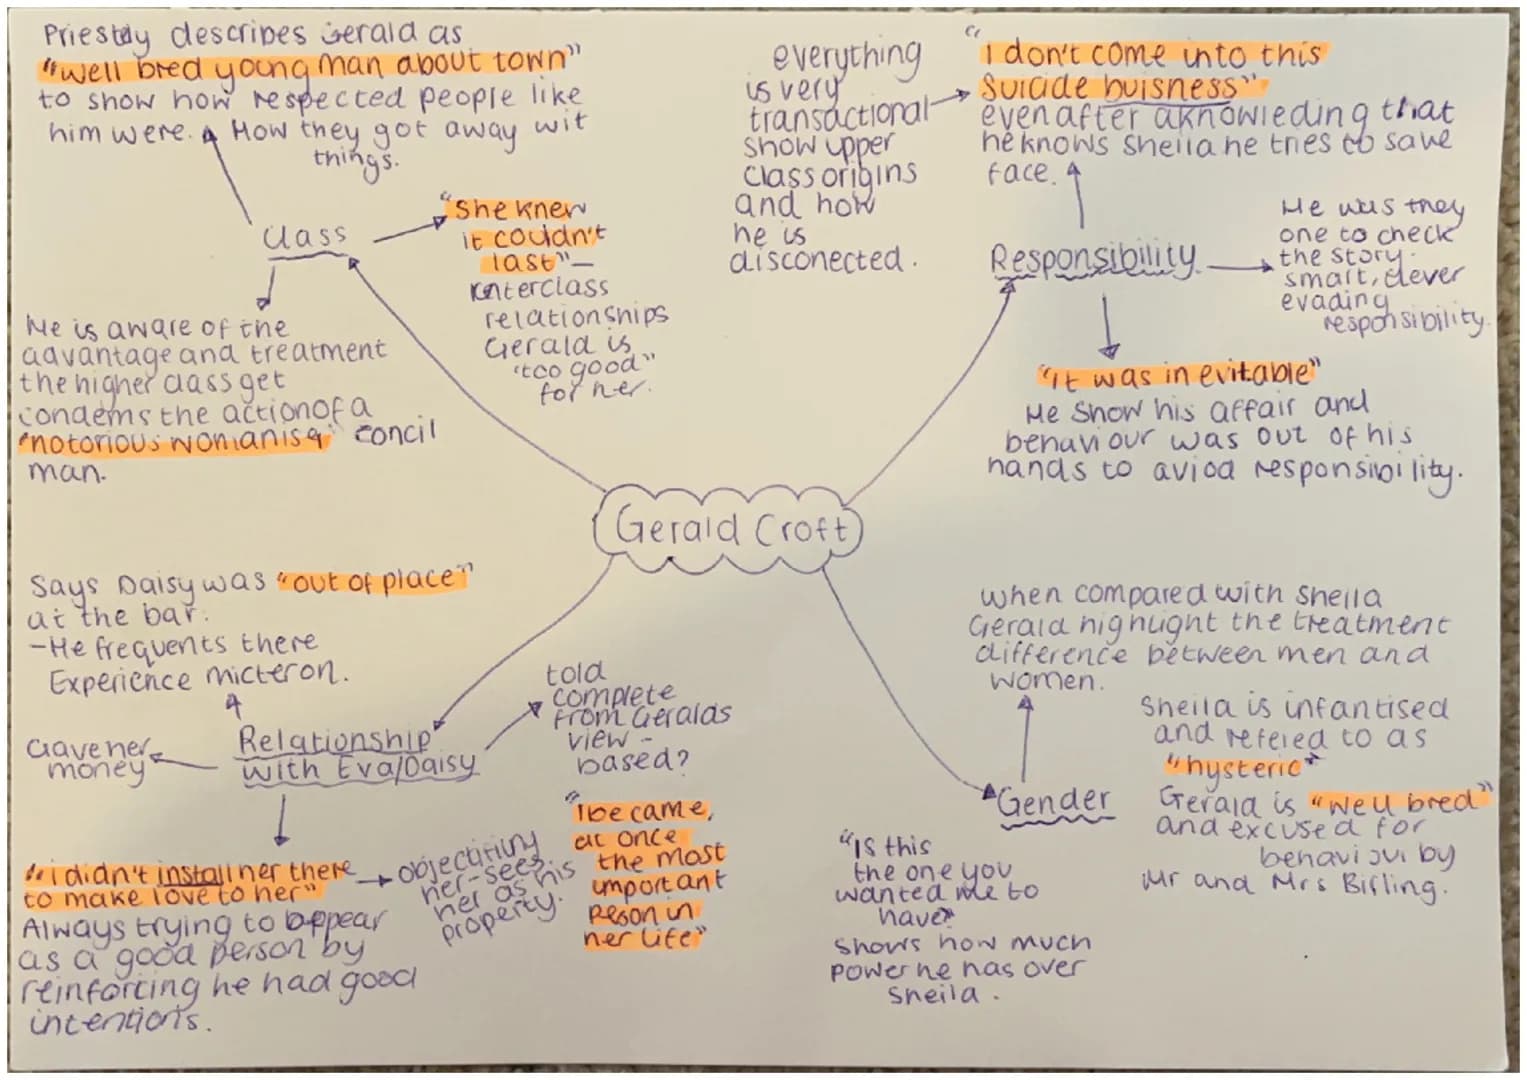 Priestly describes Gerald as
"well bred young man about town"
to show how respected people like
him were. How they got away wit
things.
Class
"She knew
it couldn't
last" –
interclass
relationships
Gerald is
"too good"
for her.
He is aware of the
advantage and treatment
the higher class get
condems the action of a
"notorious womanisa" concil
man.
everything
is very
transactional
show upper
class origins
and how
he is
disconected.
"I don't come into this
suicide buisness"
even after aknowleding that
he knows sheila he tries to save
face.
Responsibility
He was they
one to check
the story.
smart, clever
evading
responsibility.
"it was inevitable"
He show his affair and
behaviour was out of his
hands to aviod responsibility.
Gerald Croft
Says Daisy was "out of place"
at the bar.
- He frequents there
Experience micteron.
Relationship
with Eva/Daisy
Gave her
money
told
complete
from Geralds
view -
based?
"i didn't install her there
to make love to her"
Always trying to appear
as a good person by
reinforcing he had good
intentions.
objectifiny
her - sees
her as his
property.
"I became,
at once
the most
important
person in
her life"
when compared with Sheila
Gerald highlight the treatment
difference between men and
women.
Gender
Sheila is infantised
and refered to as
"hysteric"
Gerald is "well bred"
and excused for
behaviour by
Mr and Mrs Birling.
"Is this
the one you
wanted me to
have"
shows how much
power he has over
Sheila.